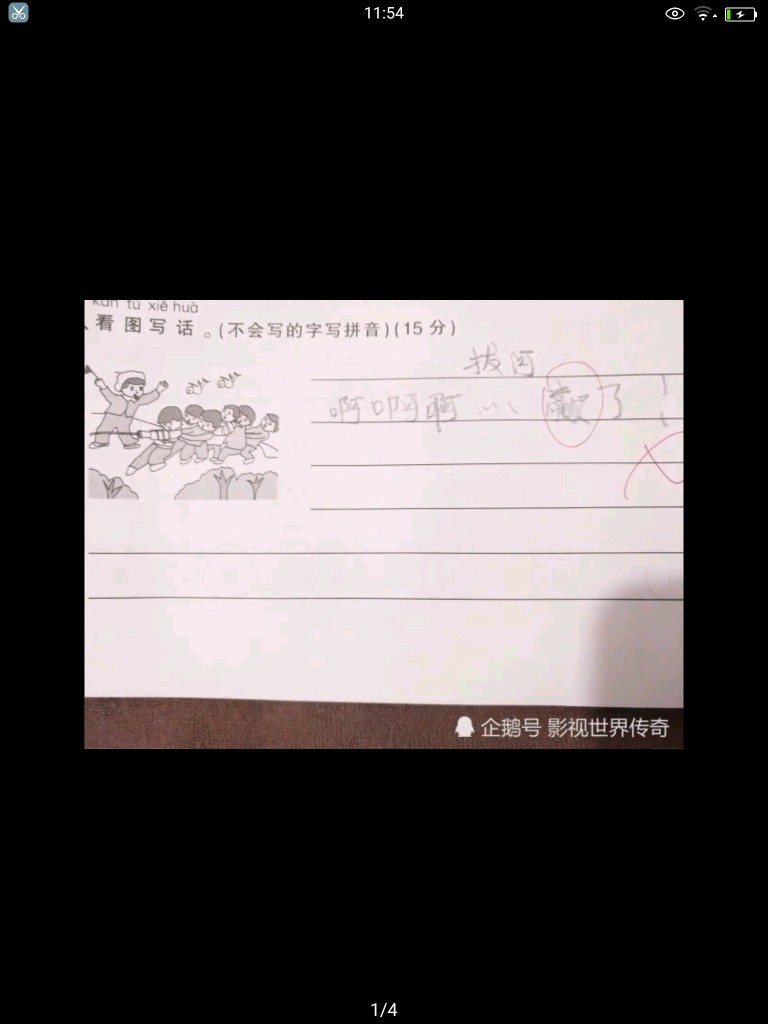 11:54
kàn tú xiě huà
看图写话。(不会写的字写拼音)(15分)
拔
啊啊啊……赢了！
企鹅号 影视世界传奇
1/4